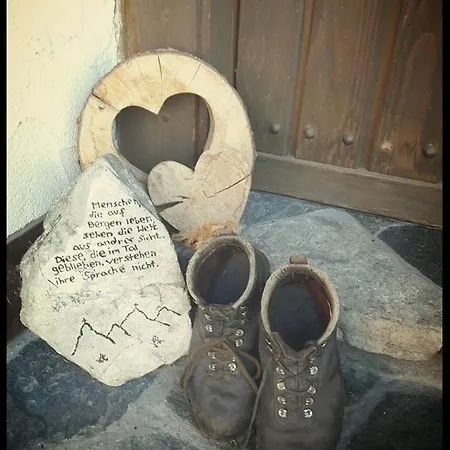 Menschen,
die auf
Bergen leben,
sehen, die Welt
aus andrer Sicht.
Diese, die im Tal
geblieben, verstehen
ihre Sprache nicht.